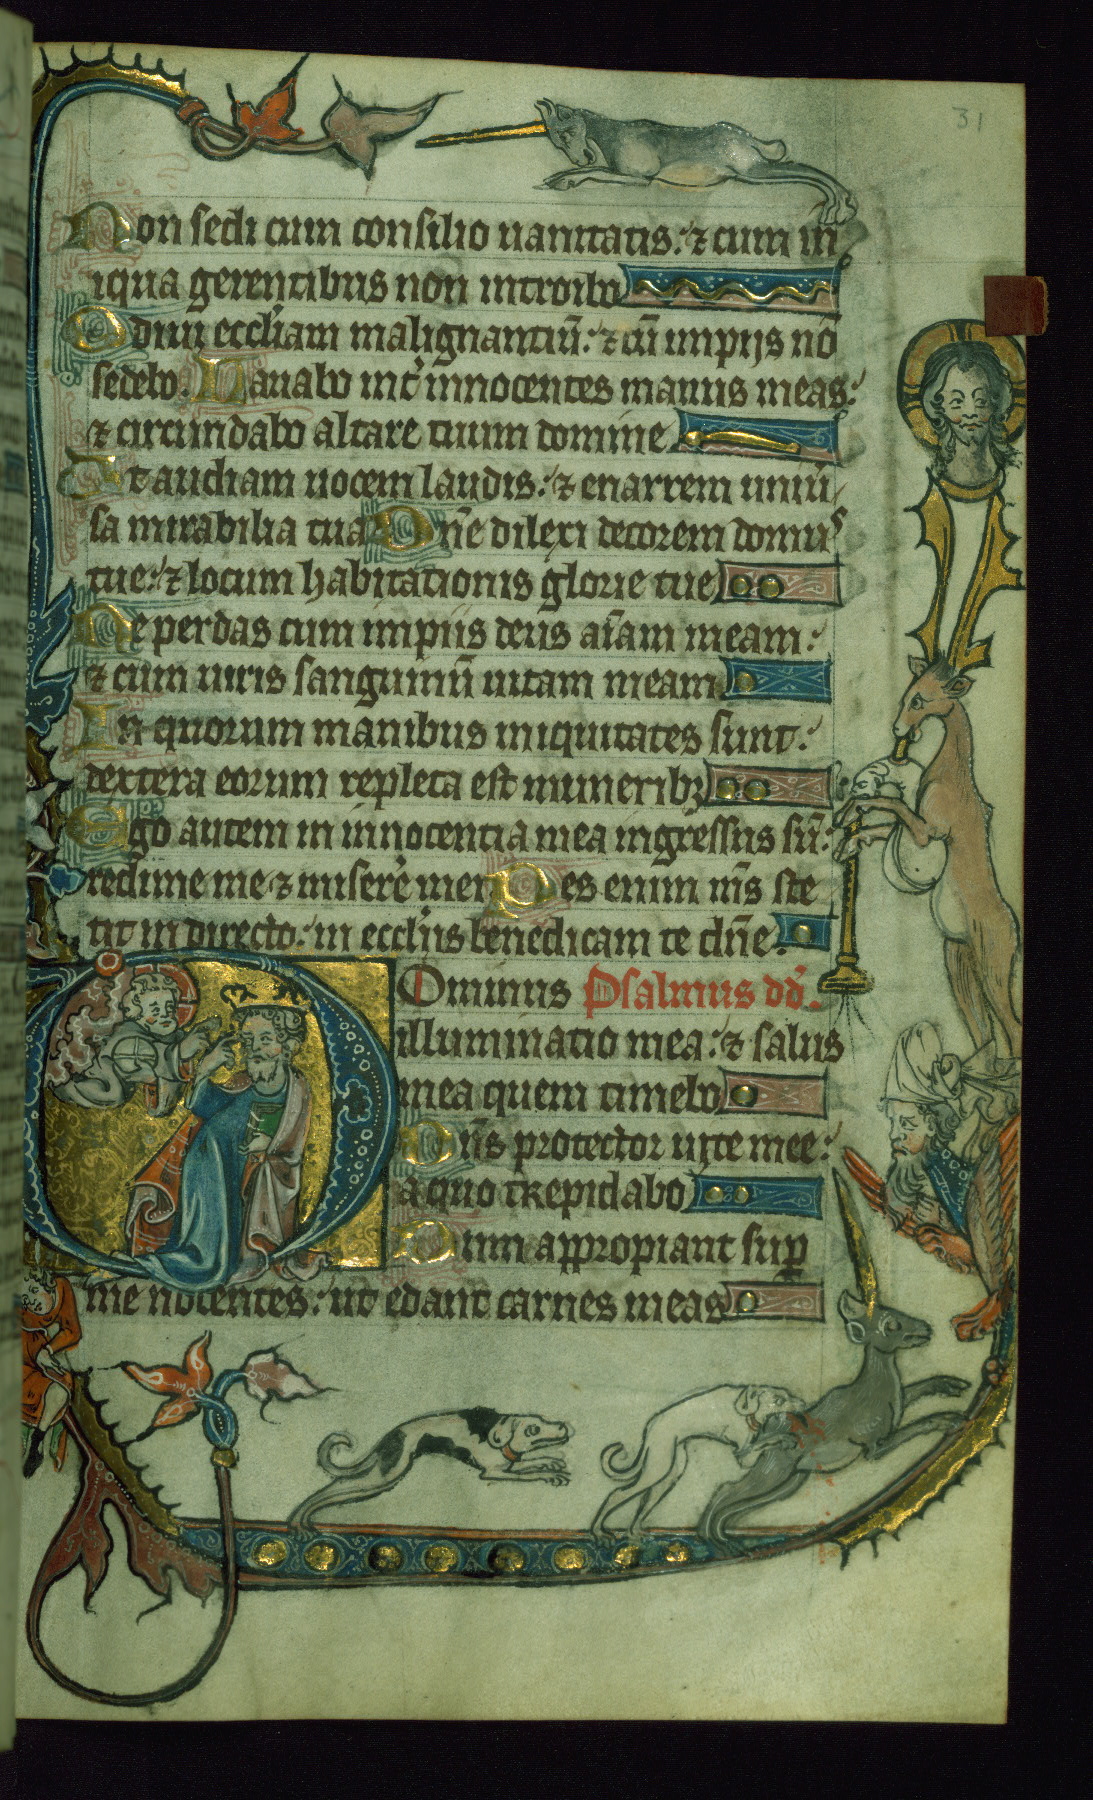 31
Non sedi cum consilio uanitatis: ⁊ cum in
iqua gerentibus non introibo
Odiui eccl'iam malignantiū: ⁊ cū impijs nō
sedebo. Lauabo int' innocentes manus meas:
⁊ circumdabo altare tuum domine
Ut audiam uocem laudis: ⁊ enarrem uniu'
sa mirabilia tua Dn̄e dilexi decorem domus
tue: ⁊ locum habitationis glorie tue
Ne perdas cum impiis deus aīam meam:
⁊ cum uiris sanguinū uitam meam
In quorum manibus iniquitates sunt:
dextera eorum repleta est muneribꝫ
Ego autem in innocentia mea ingressus sū:
redime me ⁊ misere're mei Pes enim m̄s ste
tit in directo: in eccl'iis benedicam te dn̄e.
Dominus Psalmus dd̄.
illuminatio mea: ⁊ salus
mea quem timebo
Dn̄s protector uite mee:
a quo trepidabo
Dum appropiant sup
me nocentes: ut edant carnes meas